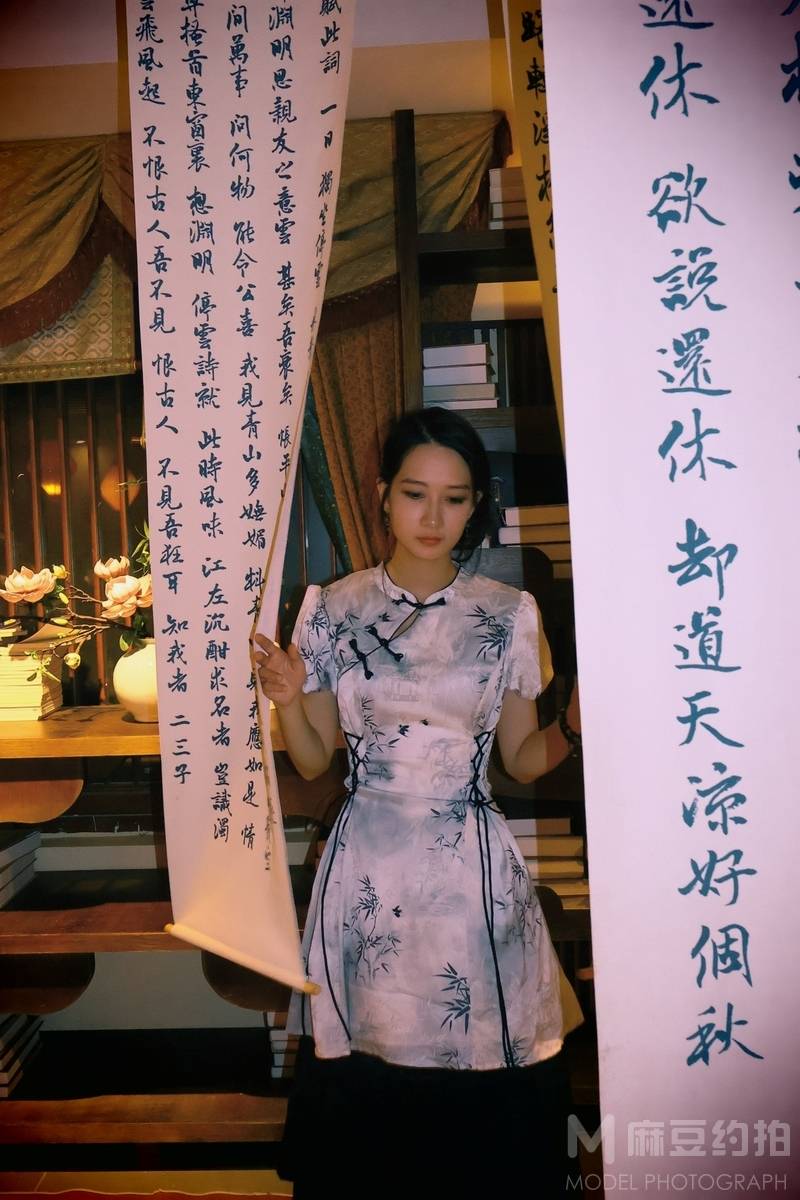 還休 欲說還休 却道天涼好個秋
路轉溪
賦此詞 一日 獨坐停雲
淵明思親友之意雲 甚矣吾衰矣 悵平
間萬事 問何物 能令公喜 我見青山多嫵媚 料青 見我應如是 情
搔首東窗裏 想淵明 停雲詩就 此時風味 江左沉酣求名者 豈識濁
雲飛風起 不恨古人吾不見 恨古人 不見吾狂耳 知我者 二三子
麻豆约拍
MODEL PHOTOGRAPH